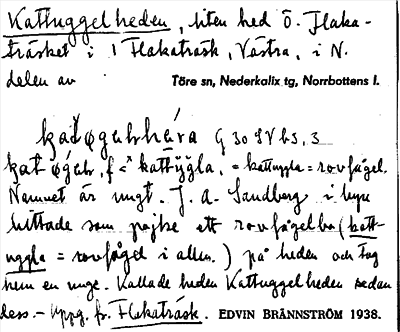 Kattuggelheden, liten hed Ö. Flaka-
träsket i 1 Flakaträsk, Västra, i N.
delen av Töre sn, Nederkalix tg, Norrbottens l.
G 30 SV b 3, 3
f. = kattuggla = rovfågel.
Namnet är ungt. J. A. Sandberg i byn
hittade som pojke ett rovfågelbo (katt-
uggla = rovfågel i allm.) på heden och tog
hem en unge. Kallade heden Kattuggelheden sedan
dess. - Uppg. fr. Flakaträsk. EDVIN BRÄNNSTRÖM 1938.